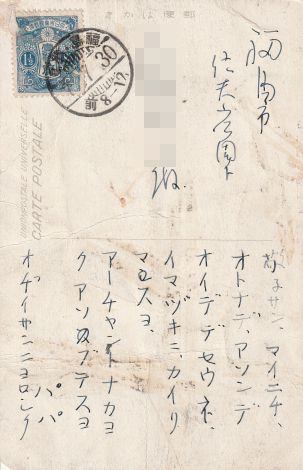 きかは便郵
UNION POSTALE UNIVERSELLE
CARTE POSTALE
福島市
信夫公園下
殿
サン、マイニチ、
オトナデ、アソンデ
オイデデセウネ、
イマヅキニ、カイリ
マスヨ、
アーチャントナカヨ
クアソブデスヨ
パパ
オヂイサンニヨロシク